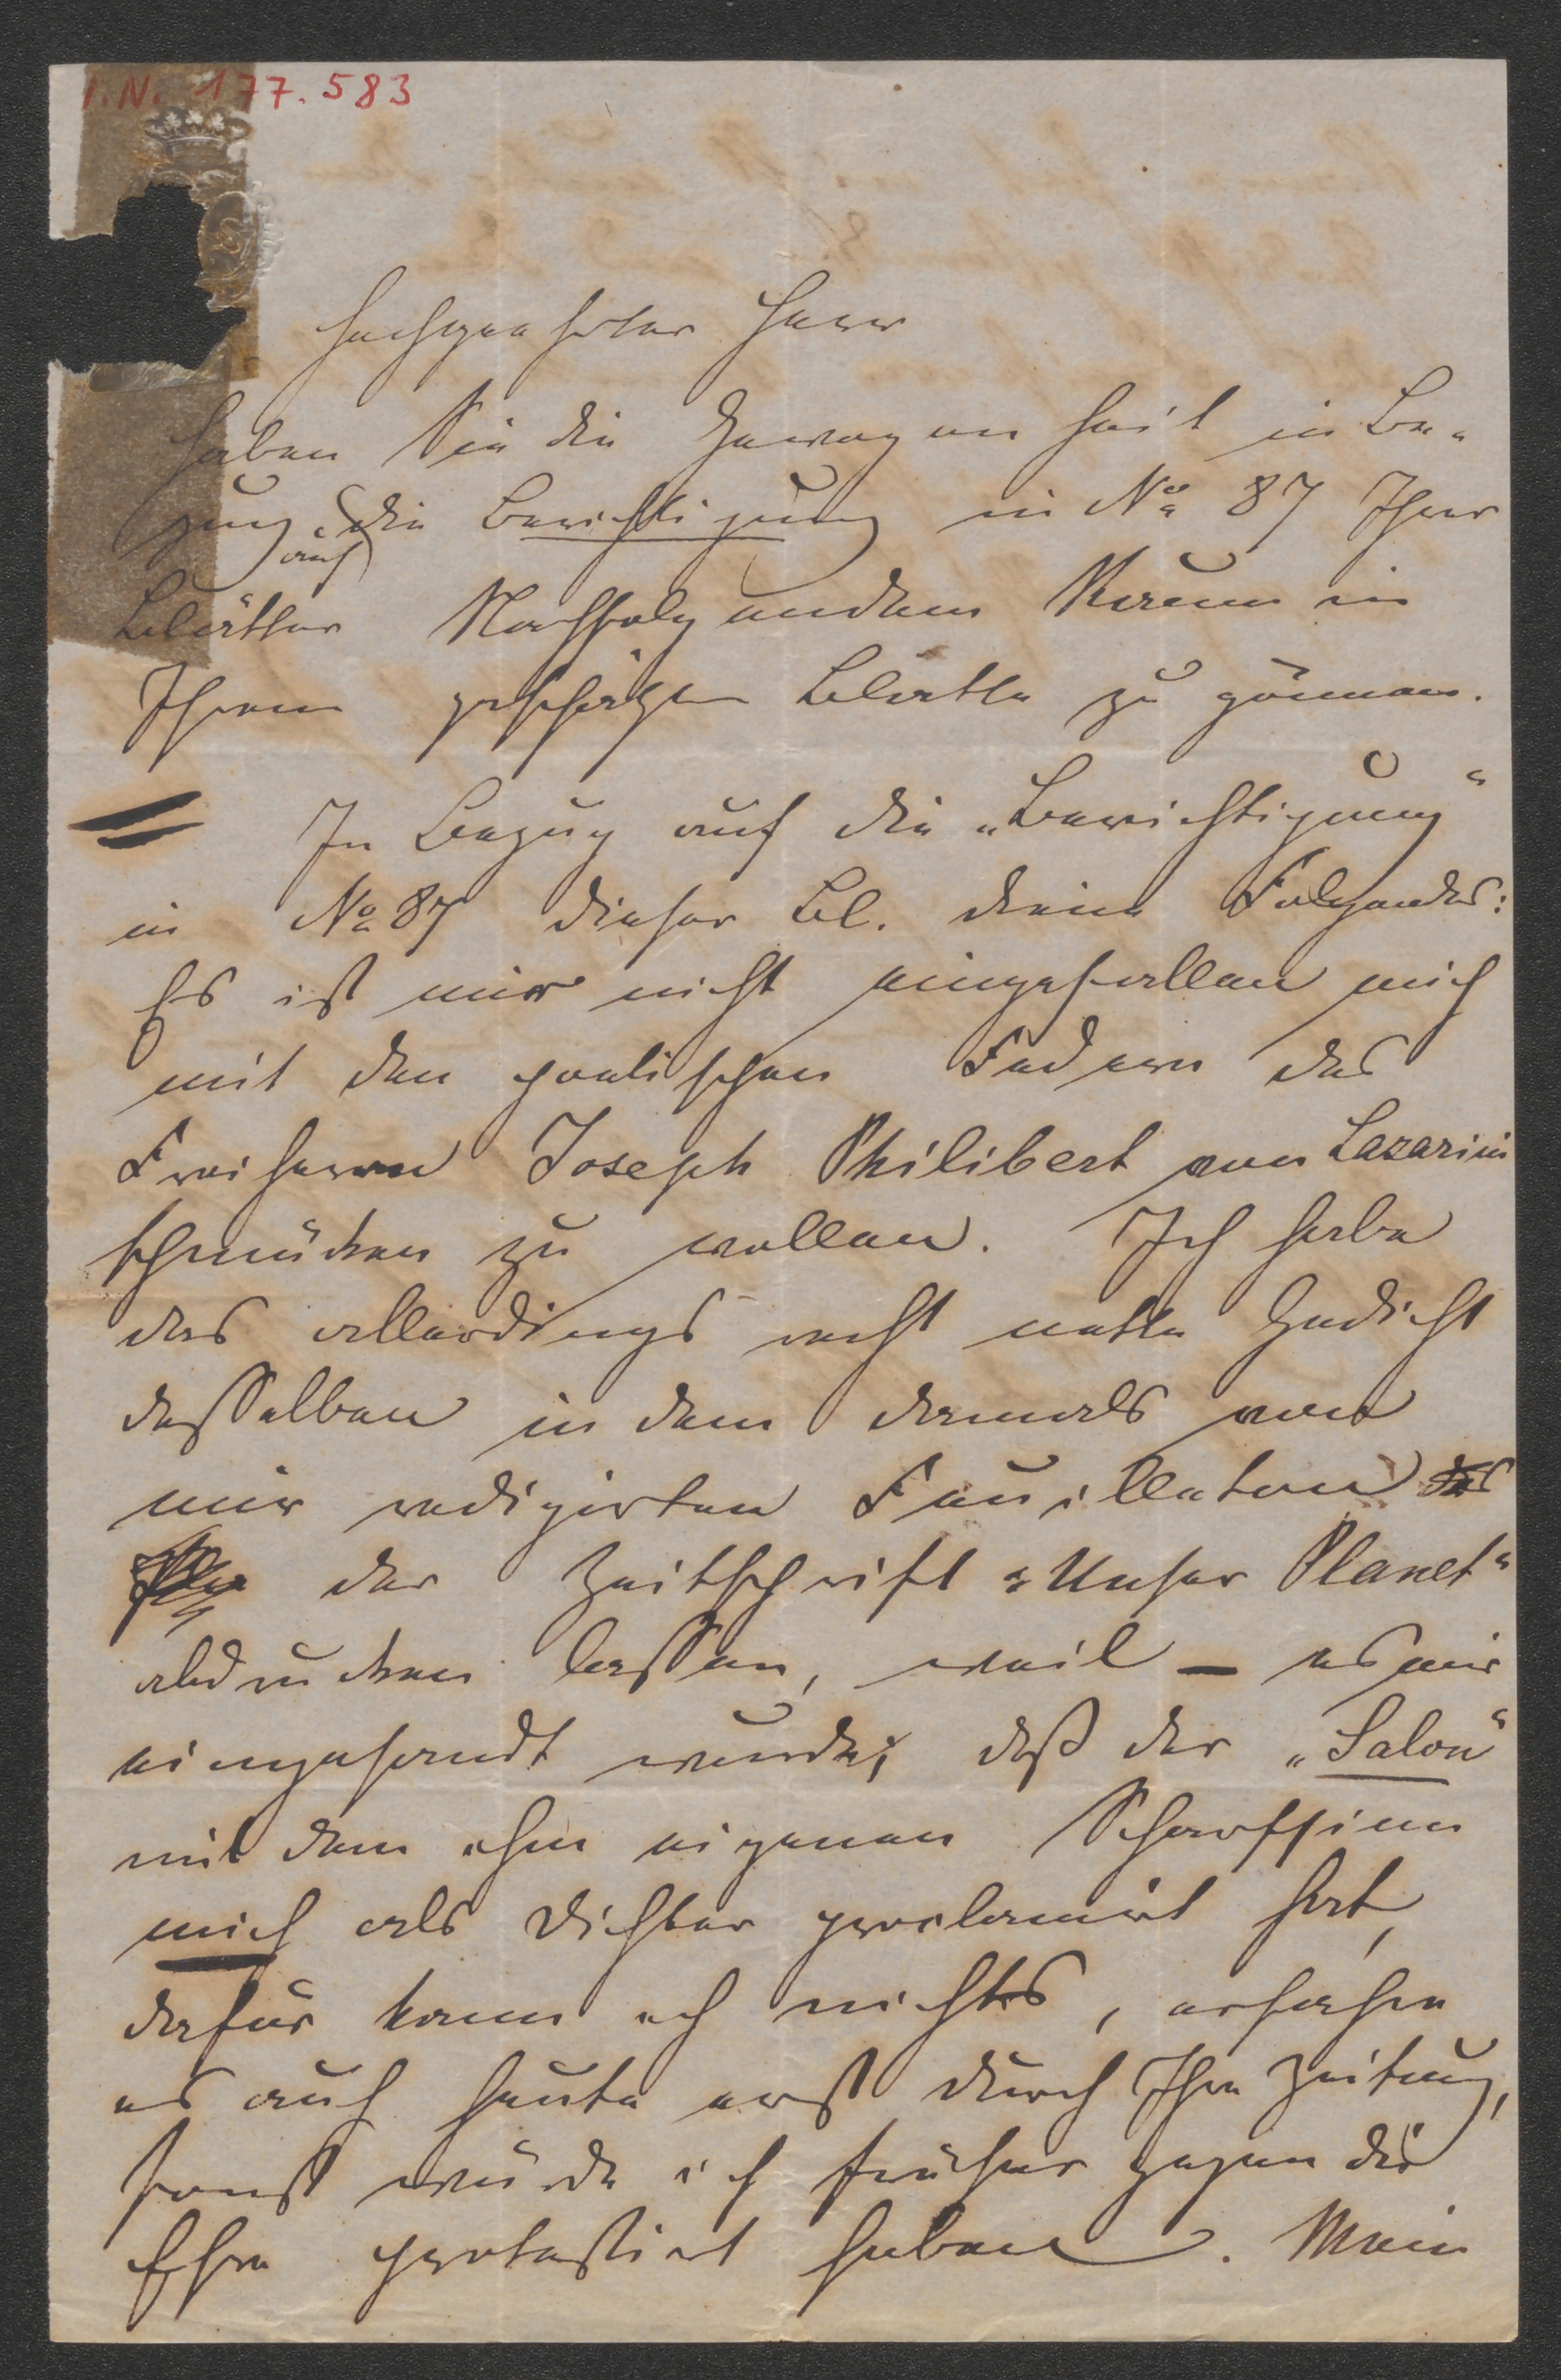 I.N. 177.583
Hochgeehrter Herr
haben Sie die Gewogenheit in Be-
zug auf die Berichtigung in No 87 Ihrer
Blätter Nachfolgendem Raum in
Ihrem geschätzten Blatte zu gönnen.
In Bezug auf die „Berichtigung“
in No 87 dieser Bl. diene Folgendes:
Es ist mir nicht eingefallen mich
mit den poetischen Federn des
Freiherrn Joseph Philibert von Lazarini
schmücken zu wollen. Ich habe
das allerdings recht nette Gedicht
desselben in dem damals von
mir redigirten Feuilleton des
der Zeitschrift „Unser Planet“
abdrucken lassen, weil — es mir
eingesandt wurde; daß der „Salon“
mit dem ihm eigenen Scharfsinn
mich als Dichter proclamirt hat,
dafür kann ich nichts, erfahre
es auch heute erst durch Ihre Zeitung,
sonst würde ich früher gegen die
Ehre protestirt haben. Mein